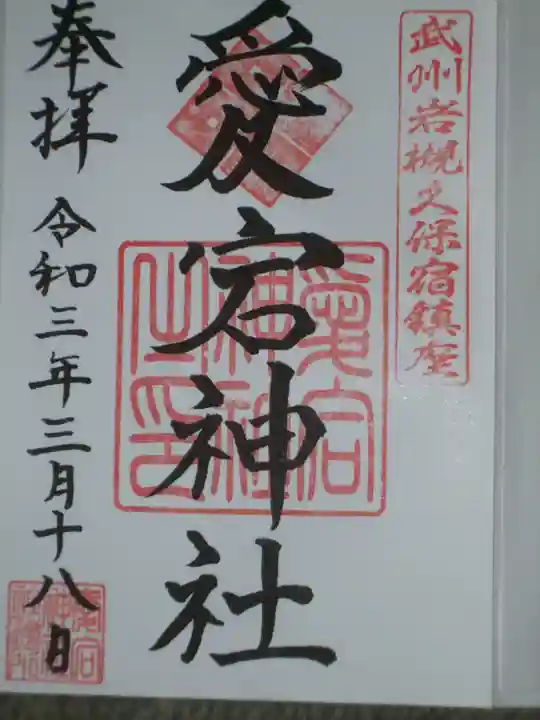 武州岩槻久保宿鎮座
愛宕神社
愛宕神社之印
奉拝
令和三年三月十八日